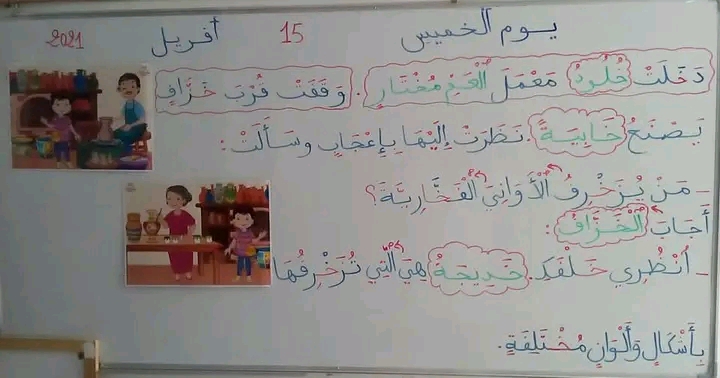 يوم الخميس 15 أفريل 2021
دَخَلَتْ خُلُودُ مَعْمَلَ الْعَمِّ مُخْتَارٍ. وَقَفَتْ قُرْبَ خَزَّافٍ
يَصْنَعُ خَابِيَةً. نَظَرَتْ إِلَيْهَا بِإِعْجَابٍ وسَأَلَتْ:
- مَنْ يُزَخْرِفُ الْأَوَانِيَ الْفَخَّارِيَّةَ؟
أَجَابَ الْخَزَّافُ:
- اُنْظُرِي خَلْفَكِ. خَدِيجَةُ هِيَ الَّتِي تُزَخْرِفُهَا
بِأَشْكَالٍ وَأَلْوَانٍ مُخْتَلِفَةٍ.